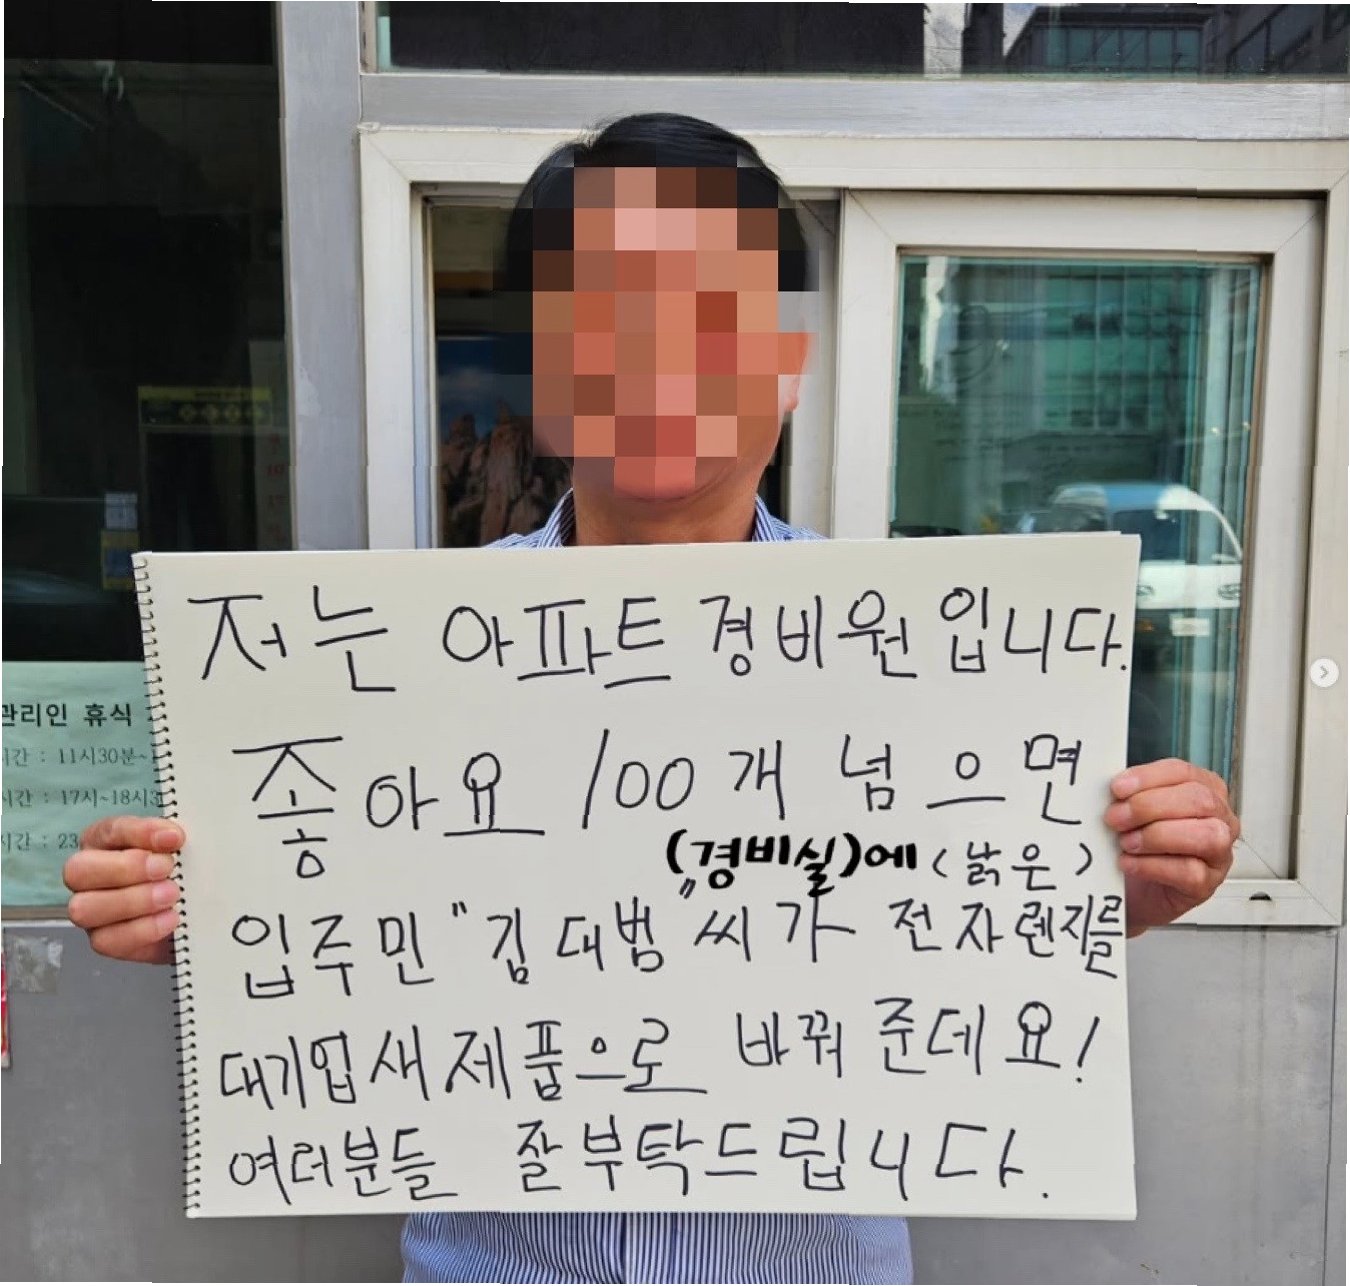 저는 아파트 경비원입니다.
좋아요 100개 넘으면
(경비실)에 (낡은)
입주민 "김대범"씨가 전자렌지를
대기업 새제품으로 바꿔 준데요!
여러분들 잘부탁드립니다.
관리인 휴식
시간 : 11시30분~
시간 : 17시~18시3
시간 : 23